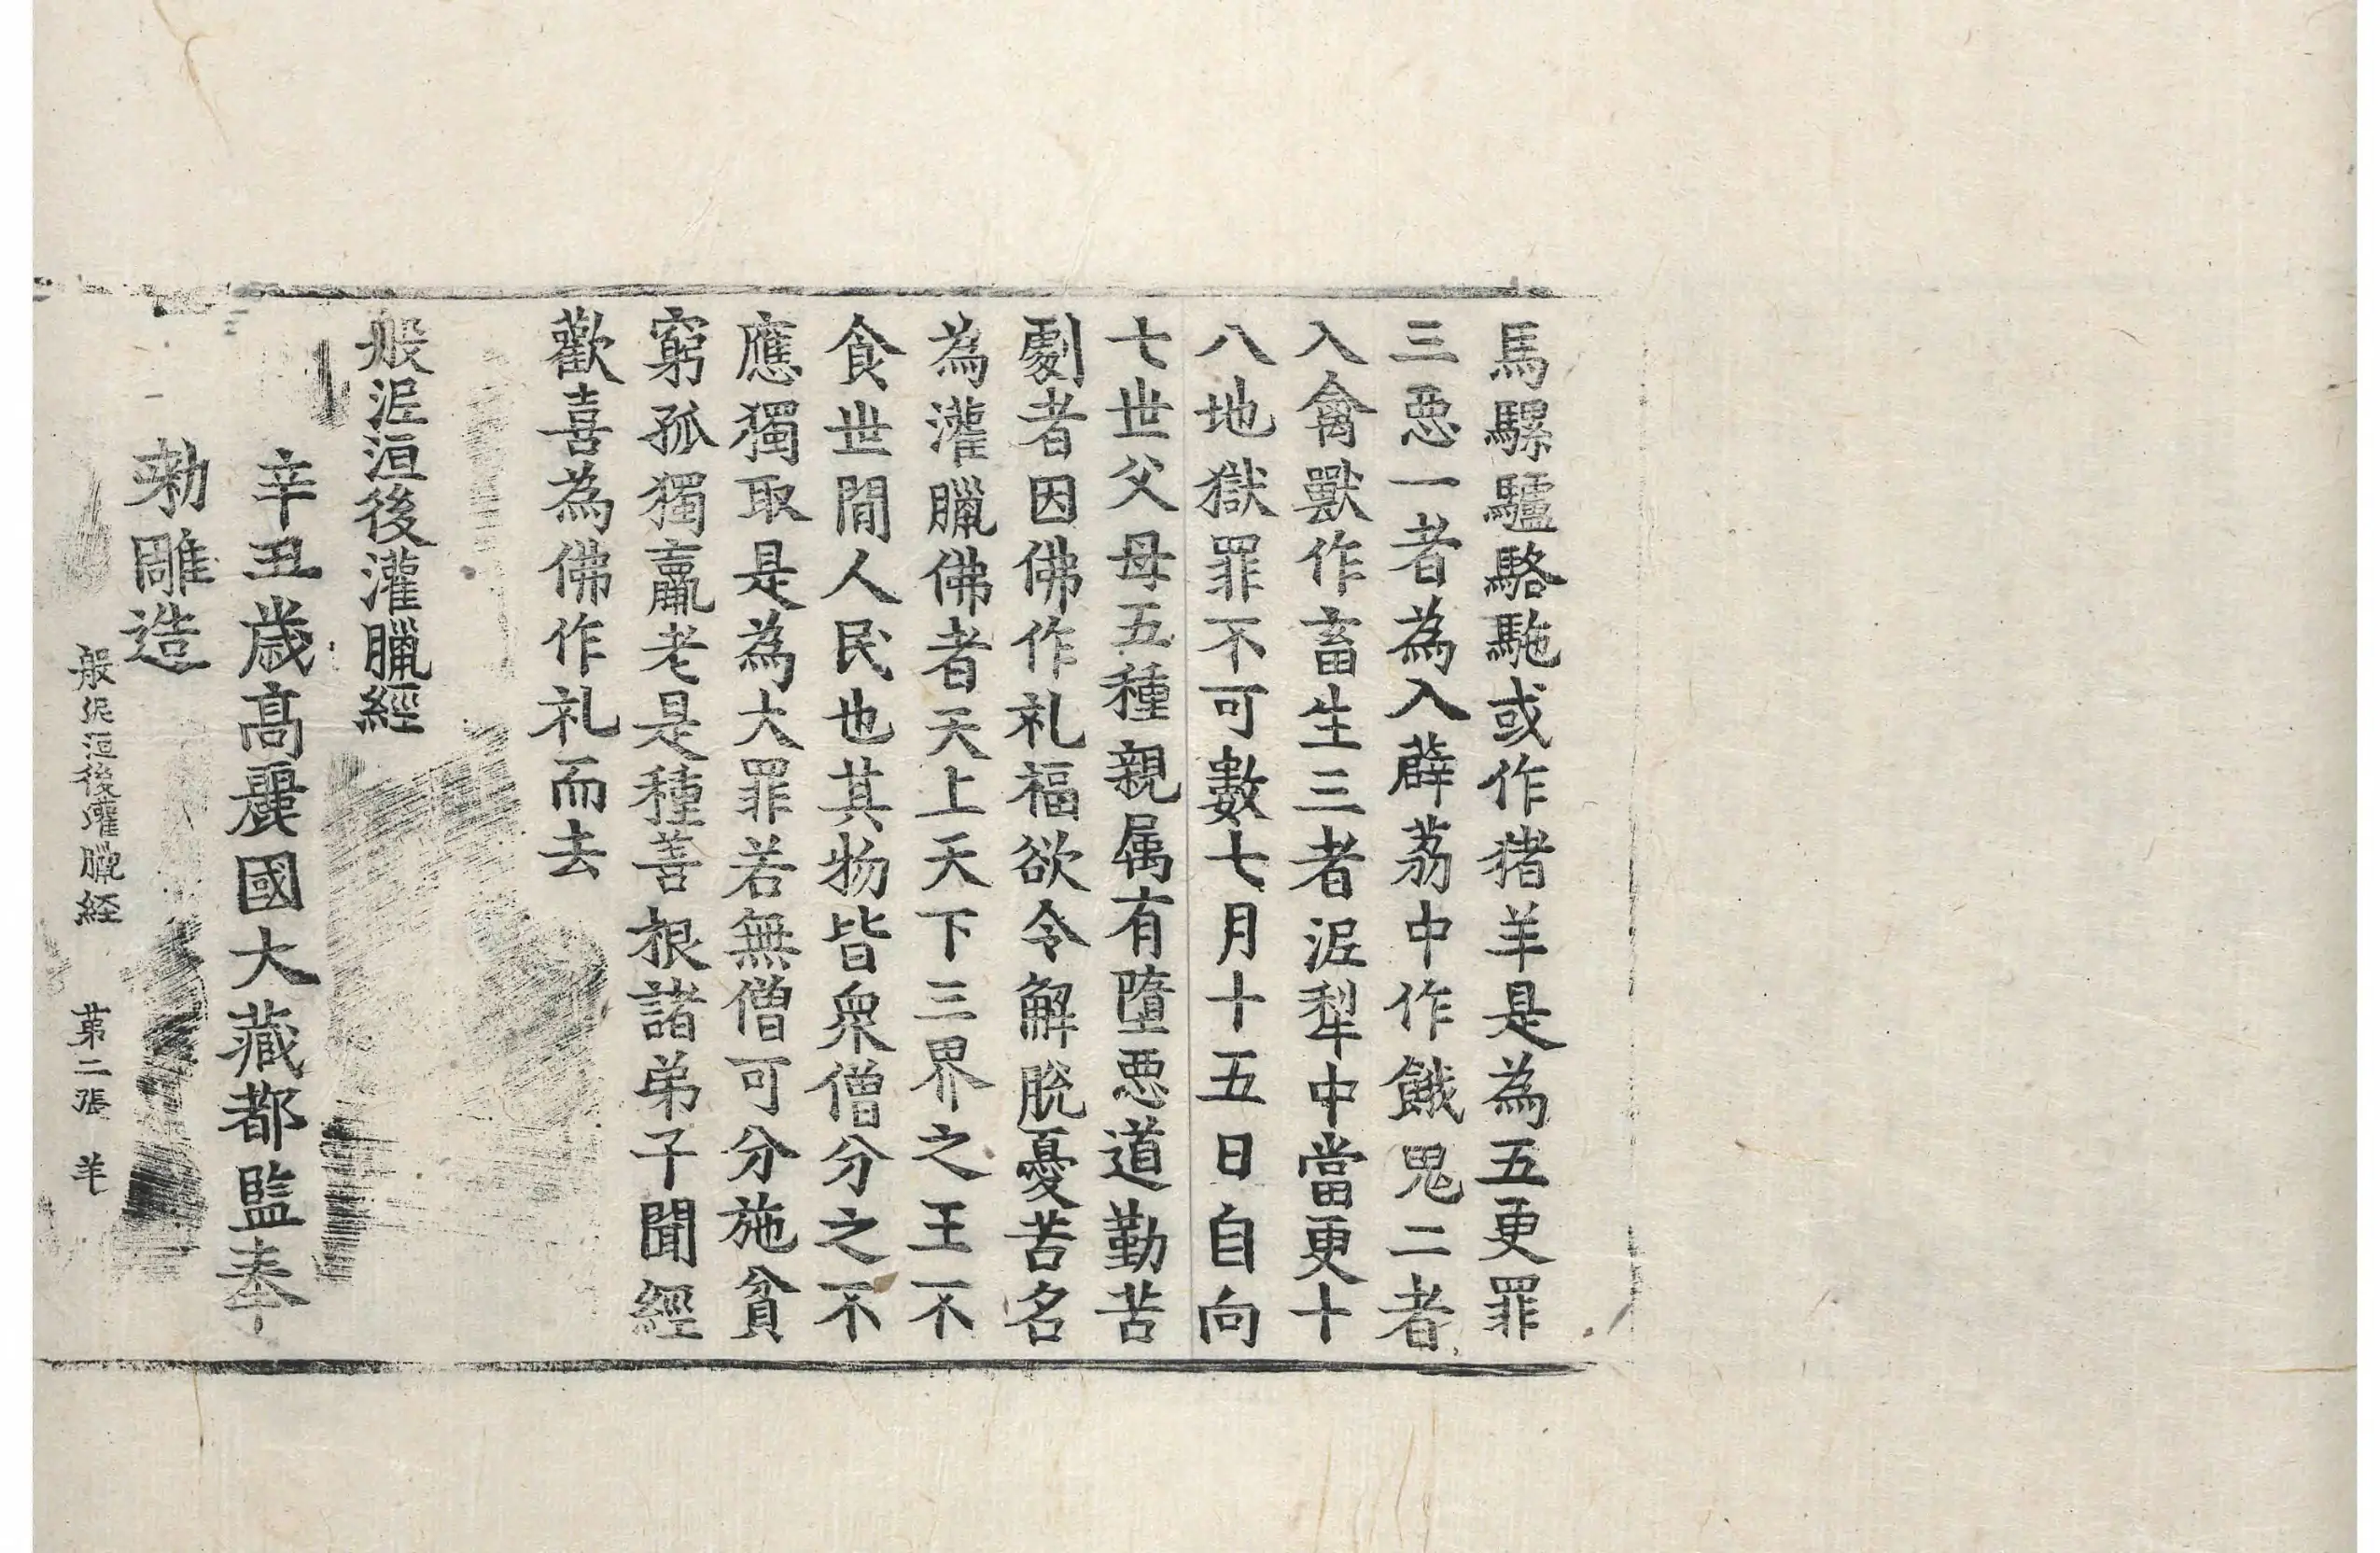 馬騾驢駱駞或作猪羊是為五更罪
三惡一者為入薜荔中作餓鬼二者
入禽獸作畜生三者泥犁中當更十
八地獄罪不可數七月十五日自向
七世父母五種親属有墮惡道勤苦
劇者因佛作礼福欲令解脫憂苦名
為灌臘佛者天上天下三界之王不
食世間人民也其物皆衆僧分之不
應獨取是為大罪若無僧可分施貧
窮孤獨羸老是種善根諸弟子聞經
歡喜為佛作礼而去
般泥洹後灌臘經
辛丑歲高麗國大藏都監奉
勅雕造
般泥洹後灌臘経 第二張 羊